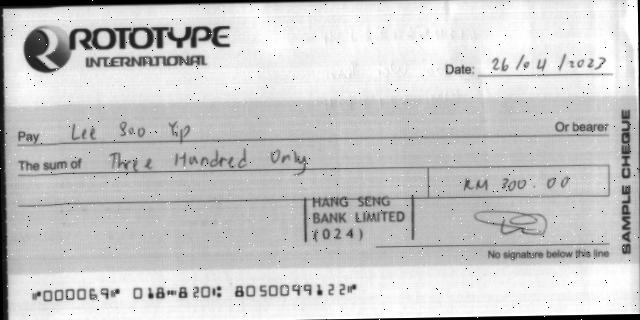 ROTOTYPE
INTERNATIONAL
Date: 26/04/2023
Pay Lee Soo Yip Or bearer
The sum of Three Hundred Only
RM 300.00
HANG SENG
BANK LIMITED
(024)
No signature below this line
SAMPLE CHEQUE
⑈000069⑈ 018⑉820⑆ 8050049122⑈